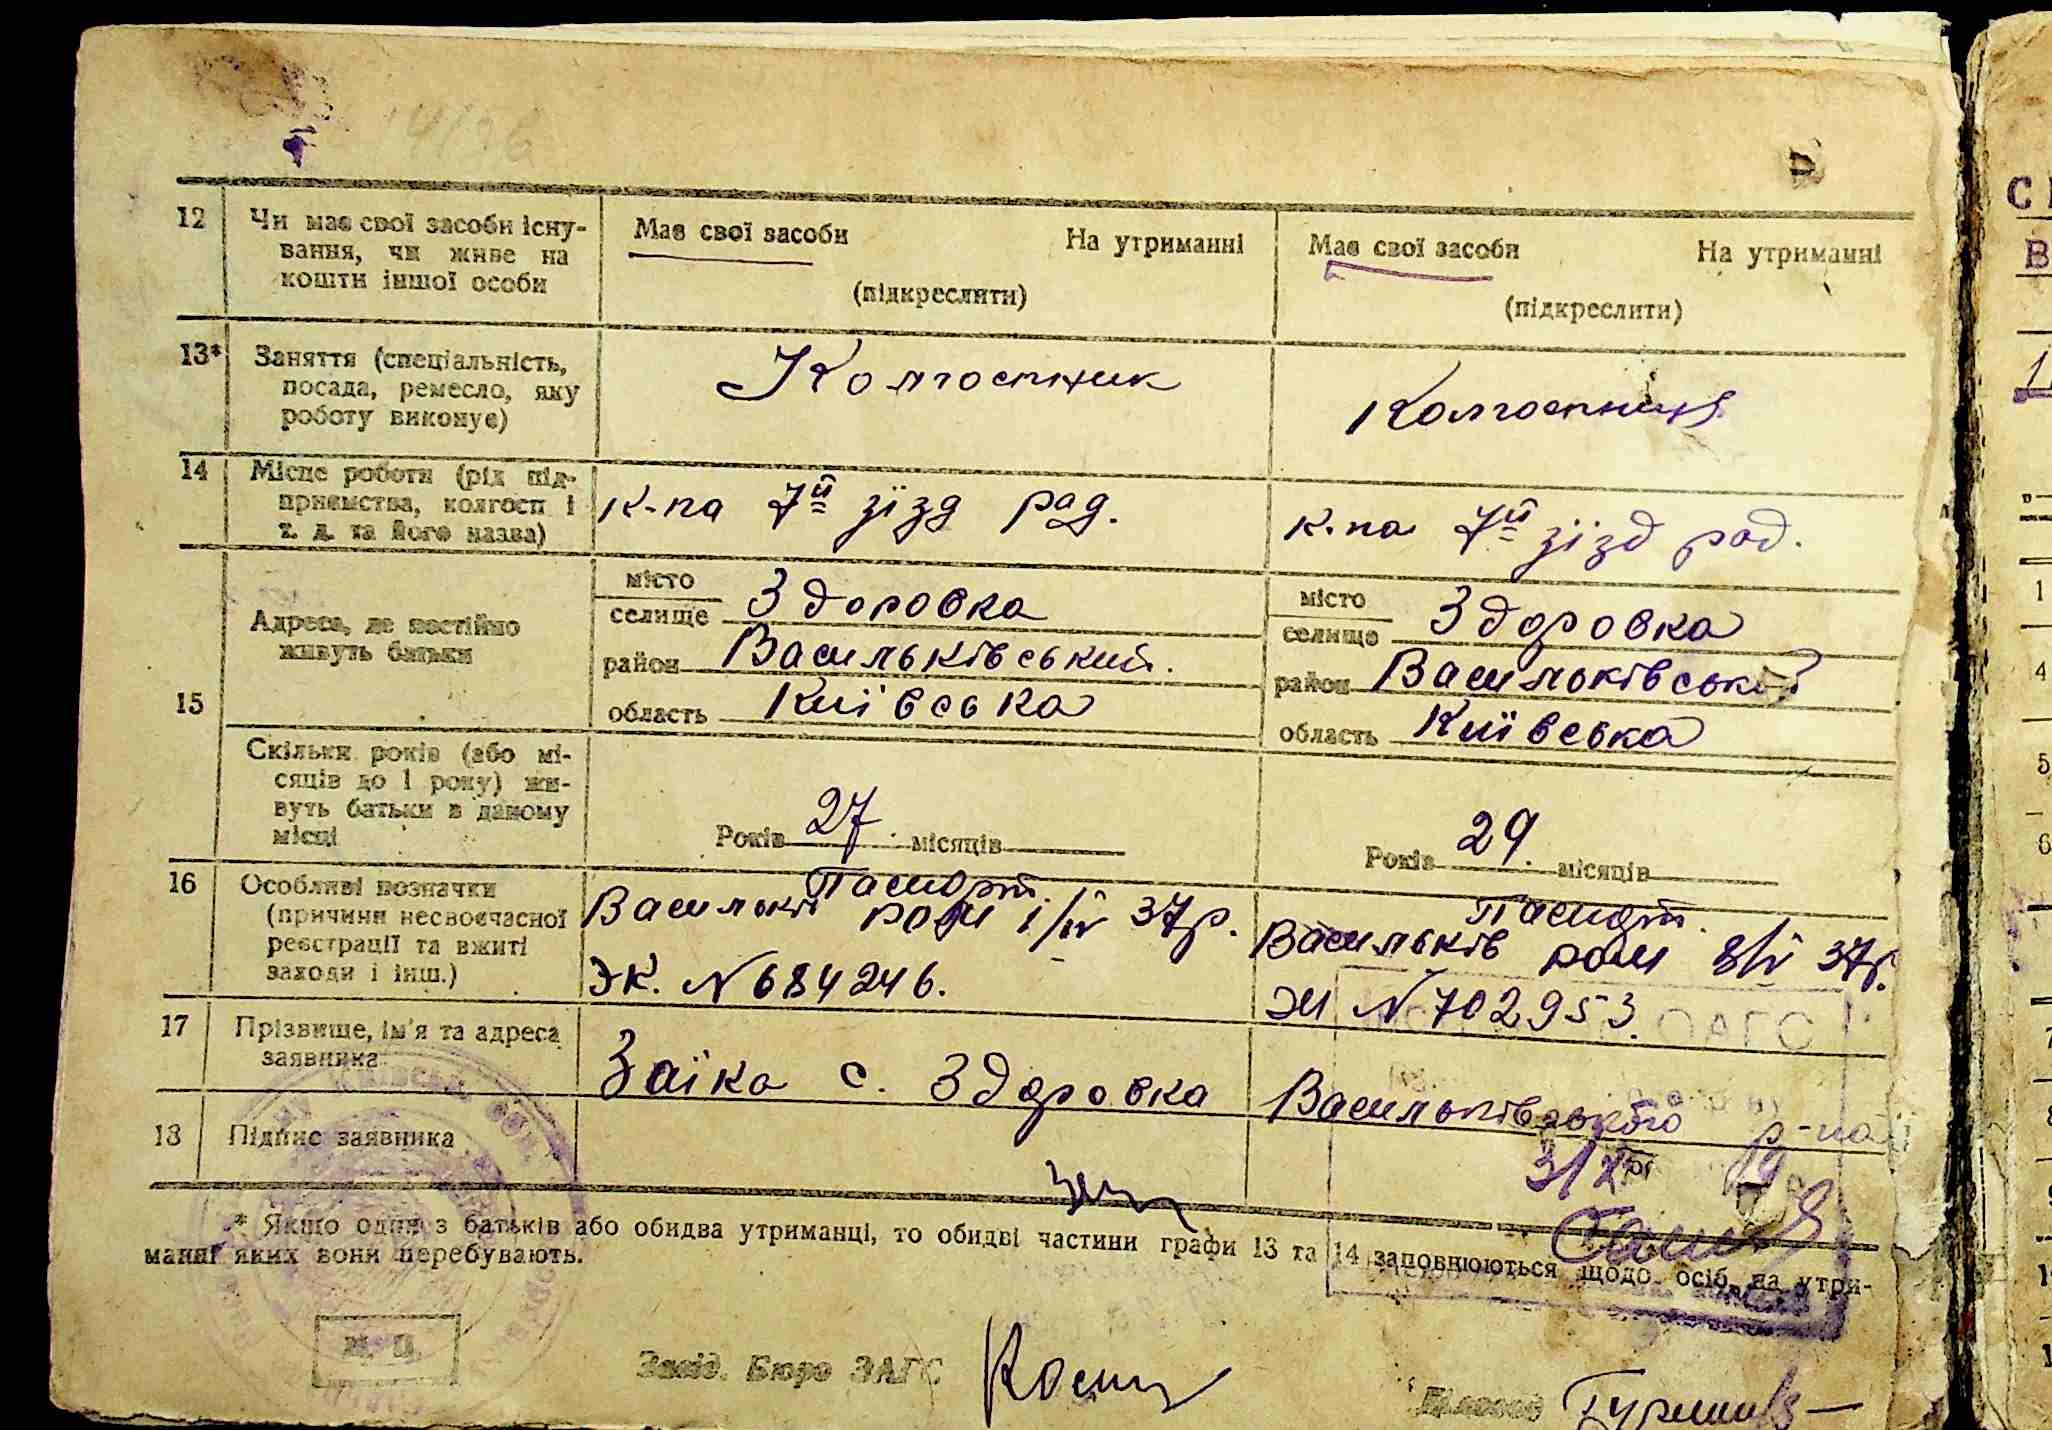 12 Чи має свої засоби існу-
вання, чи живе на
кошти іншої особи
Має свої засоби На утриманні
(підкреслити)
Має свої засоби На утриманні
(підкреслити)
13* Заняття (спеціальність,
посада, ремесло, яку
роботу виконує)
Колгоспник
Колгоспниця
14 Місце роботи (рід під-
приємства, колгосп і
т. д. та його назва)
к-па 7й зїзд рад.
к-па 7й зїзд рад.
15
Адреса, де постійно
живуть батьки
місто
селище Здоровка
район Васильківський.
область Київська
місто
селище Здоровка
район Васильківський
область Київська
Скільки років (або мі-
сяців до 1 року) жи-
вуть батьки в даному
місці
Років 27 місяців
Років 29. місяців
16 Особливі позначки
(причини несвоєчасної
реєстрації та вжиті
заходи і інш.)
Паспорт
Васильків 37р.
ЭК. N 684246.
Паспорт.
Васильків 37р.
N 702953.
17 Прізвище, ім'я та адреса
заявника
Заїка с. Здоровка
Васильківського р-на
18 Підпис заявника
* Якщо один з батьків або обидва утриманці, то обидві частини графи 13 та 14 заповнюються щодо осіб, на утри-
манні яких вони перебувають.
М. П.
Завід. Бюро ЗАГС